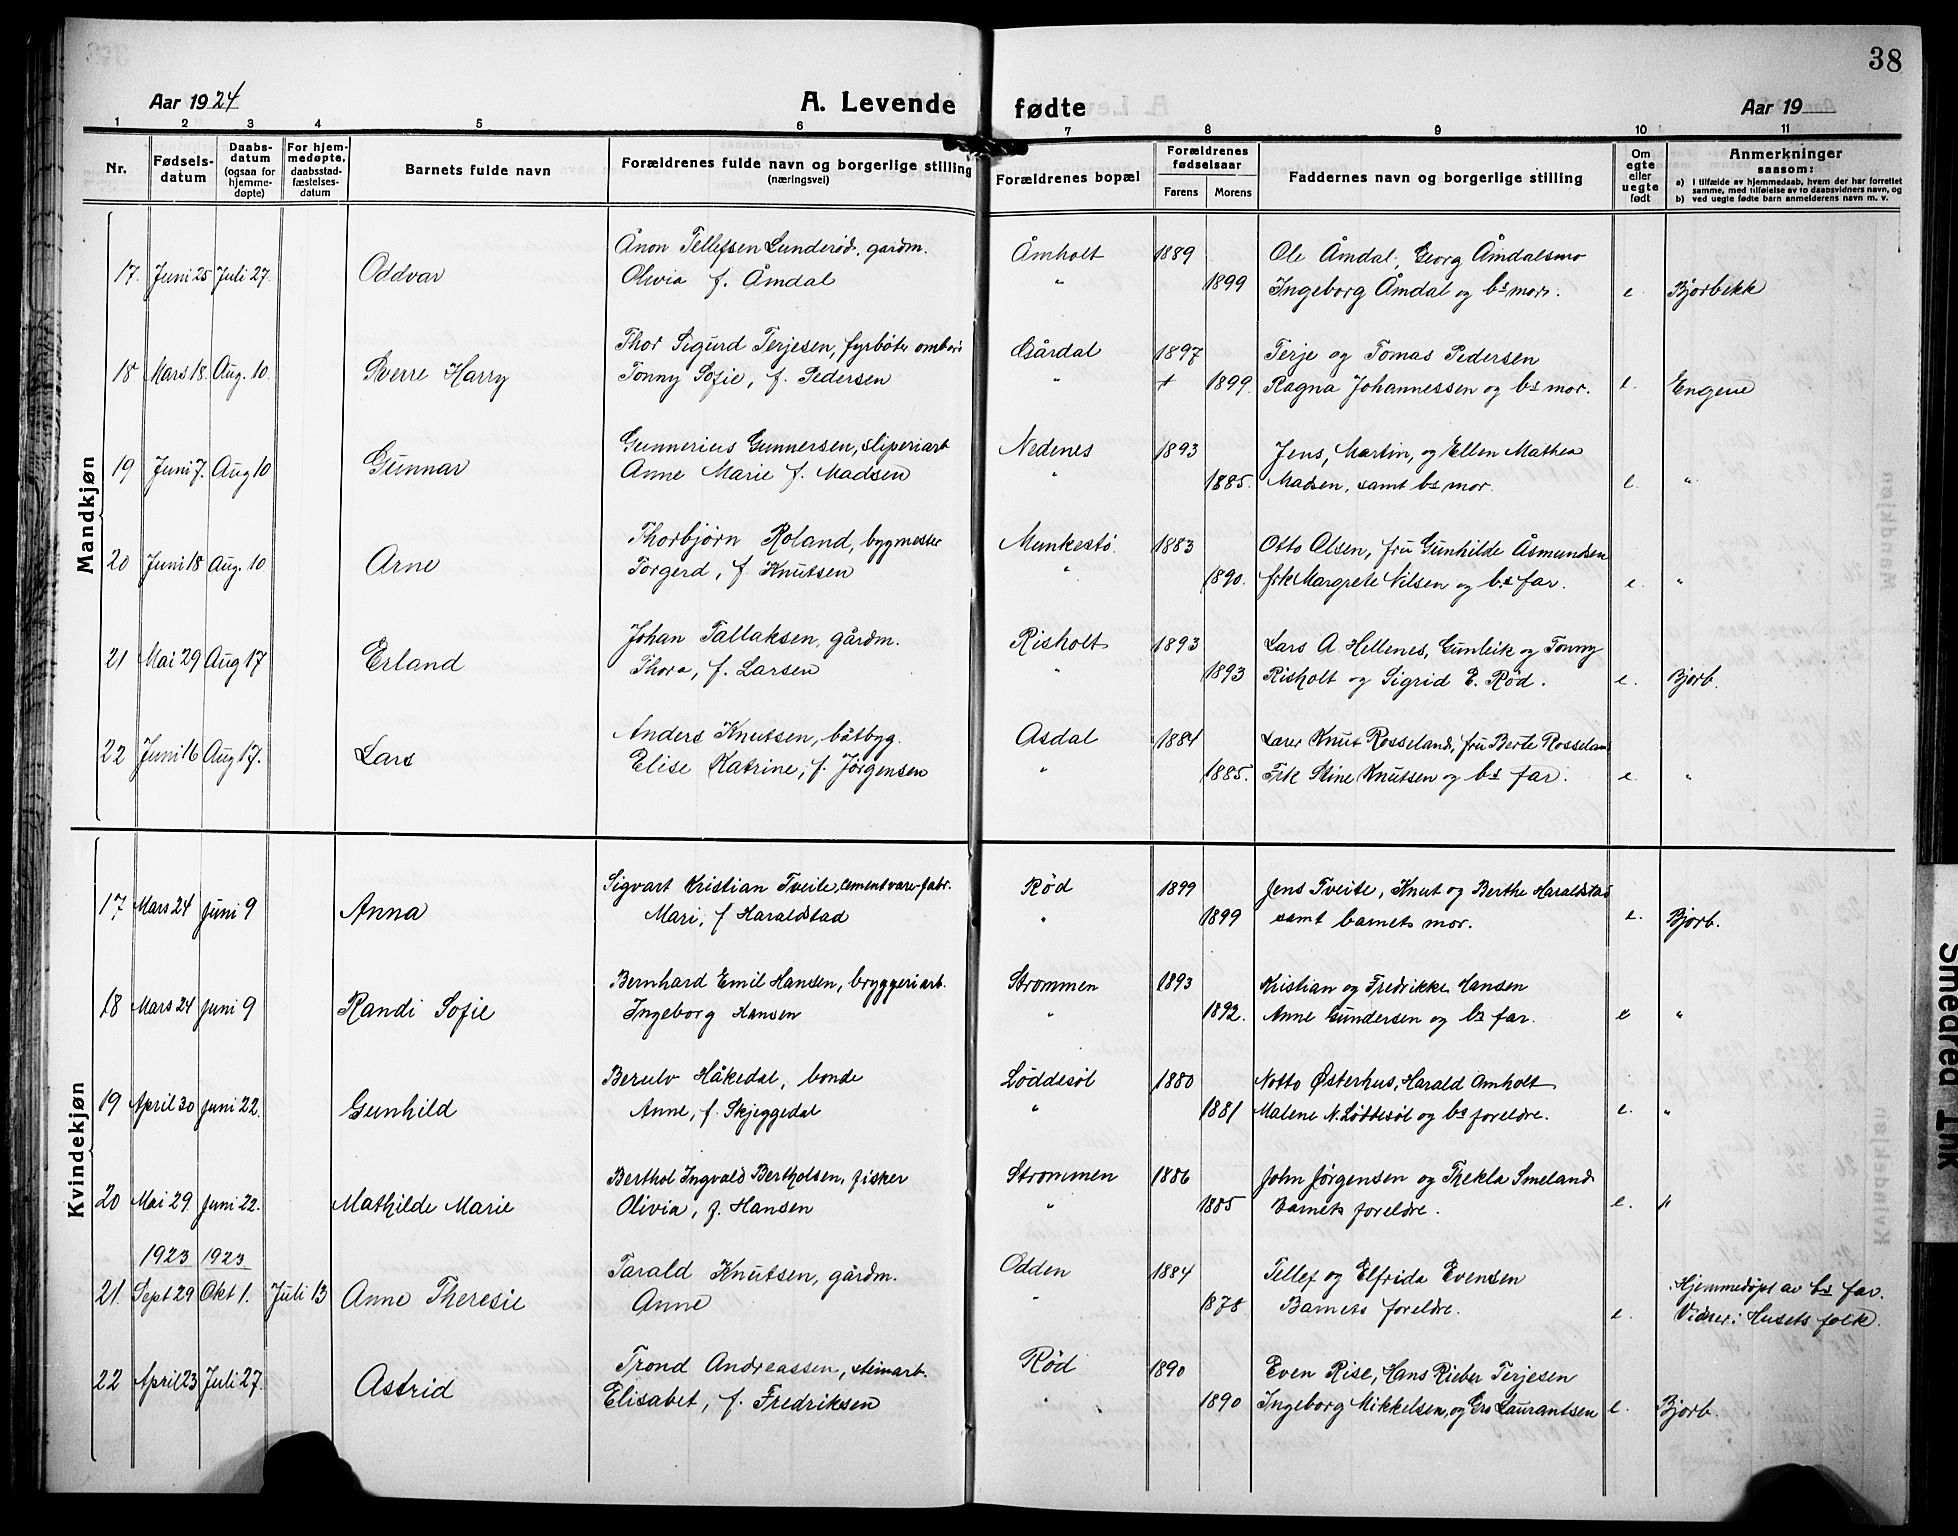 38
Aar 1924 A. Levende fødte Aar 19
1 2 3 4 5 6 7 8 9 10 11
Nr. Fødsels-datum Daabs-datum (ogsaa for hjemme-døpte) For hjem-medøpte, daabsstad-fæstelses-datum Barnets fulde navn Forældrenes fulde navn og borgerlige stilling (næringsvei) Forældrenes bopæl Forældrenes fødselsaar Farens Morens Faddernes navn og borgerlige stilling Om egte eller uegte født Anmerkninger saasom: a) I tilfælde av hjemmedaab, hvem der har forrettet samme, med tilføielse av to daabsvidners navn, og b) ved uegte fødte barn anmelderens navn m. v.
Mandkjøn
Ånon Tellefsen Lunderød, gardm. Åmholt 1889 Ole Åmdal, Georg Åmdalsmo
17. Juni 25 Juli 27. Oddvar Olivia f. Åmdal " 1899 Ingeborg Åmdal og bs mor. e. Bjorbekk
Thor Sigurd Terjesen, fyrbøter ombord Gårdal 1897 Terje og Tomas Pedersen
18 Mars 18. Aug. 10. Sverre Harry Tonny Sofie, f. Pedersen " + 1899. Ragna Johannessen og bs mor. e. Engene
Gunnerius Gunnersen, sliperiarb Nedenes 1893 Jens, Martin, og Ellen Mathea
19 Juni 7. Aug 10 Gunnar Anne Marie f. Madsen " 1885. Madsen, samt bs mor. e. "
Thorbjørn Roland, bygmester Munkestø. 1883 Otto Olsen, fru Gunhilde Åsmundsen
20 Juni 18 Aug. 10 Arne Torgerd, f. Knutsen " 1890. frk Margrete Nilsen og bs far. e. "
Johan Tallaksen, gårdm. Risholt 1893 Lars A Hellenes, Gunleik og Tonny
21 Mai 29 Aug 17 Erland Thora, f. Larsen " 1893 Risholt og Sigrid E. Rød. e. Bjorb.
Anders Knutsen, båtbyg. Asdal 1884 Lærer Knut Rosseland, fru Berte Rosseland
22 Juni 16 Aug 17. Lars Elise Katrine, f. Jørgensen " 1885. Frk Stine Knutsen og bs far. e. "
Kvindekjøn
Sigvart Kristian Tveite, cementvare-fabr. Rød 1899 Jens Tveite, Knut og Berthe Haraldstad
17 Mars 24 Juni 9 Anna Mari, f Haraldstad " 1899 samt barnets mor. e. Bjorb.
Bernhard Emil Hansen, bryggeriarb. Strømmen 1893 Kristian og Fredrikke Hansen
18 Mars 24 Juni 9 Randi Sofie Ingeborg Hansen " 1892. Anne Gundersen og bs far. e "
Berulv Håkedal, bonde Løddesøl 1880 Notto Østerhus, Harald Amholt
19 April 30 Juni 22. Gunhild Anne, f. Skjeggedal " 1881 Malene N. Løddesøl og bs foreldre. e. "
Berthol Ingvald Bertholsen, fisker Strømmen 1886 John Jørgensen og Thekla Smeland
20 Mai 29. Juni 22. Mathilde Marie Olivia, f. Hansen " 1885 Barnets foreldre. e. "
1923 1923 Tarald Knutsen, gårdm. Odden 1884 Tellef og Elfrida Evensen Hjemmedøpt av bs far.
21. Sept 29 Okt 1. Juli 13 Anne Theresie Anne " 1878. Barnets foreldre. e. Vidner: Husets folk.
Trond Andreassen, steinarb. Rød 1890 Even Rise, Hans Rieber Terjesen
22 April 23 Juli 27. Astrid Elisabet, f. Fredriksen " 1890 Ingeborg Mikkelsen, og Gro Laurantsen e. Bjorb.
Smeared Ink